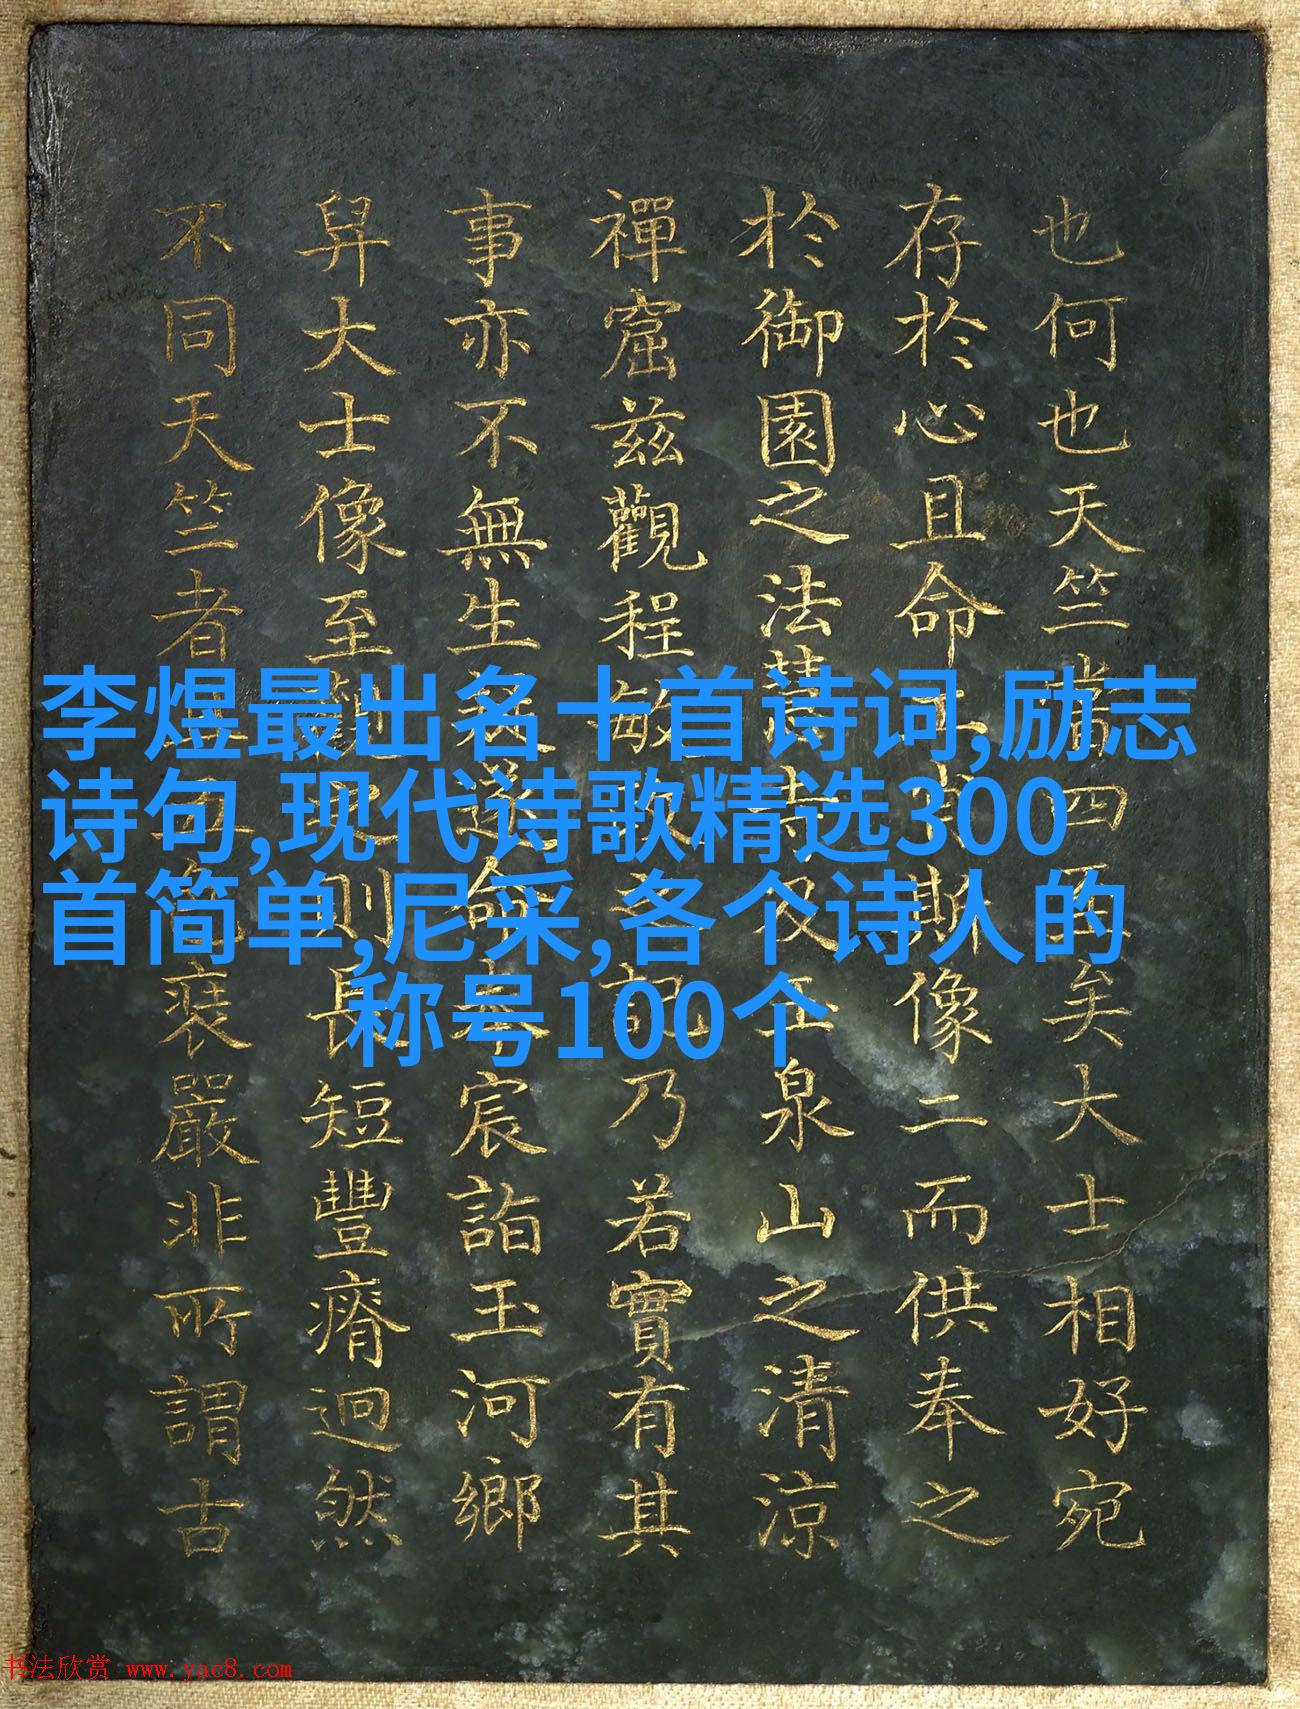 也何也天竺嘗四矣大士相好宛
存於心且命斯像二而供奉之
於御園之法慧寺及玉泉山之清涼
禪窟兹觀程敏記乃若實有其
事亦不無生疑遂命奉宸詣玉河鄉
舁大士像至觀之則長短豐瘠迥然
不同天竺者嚴非所謂古
李煜最出名十首诗词,励志
诗句,现代诗歌精选300
首简单,尼采,各个诗人的
称号100个
书法欣赏 www.yac8.com